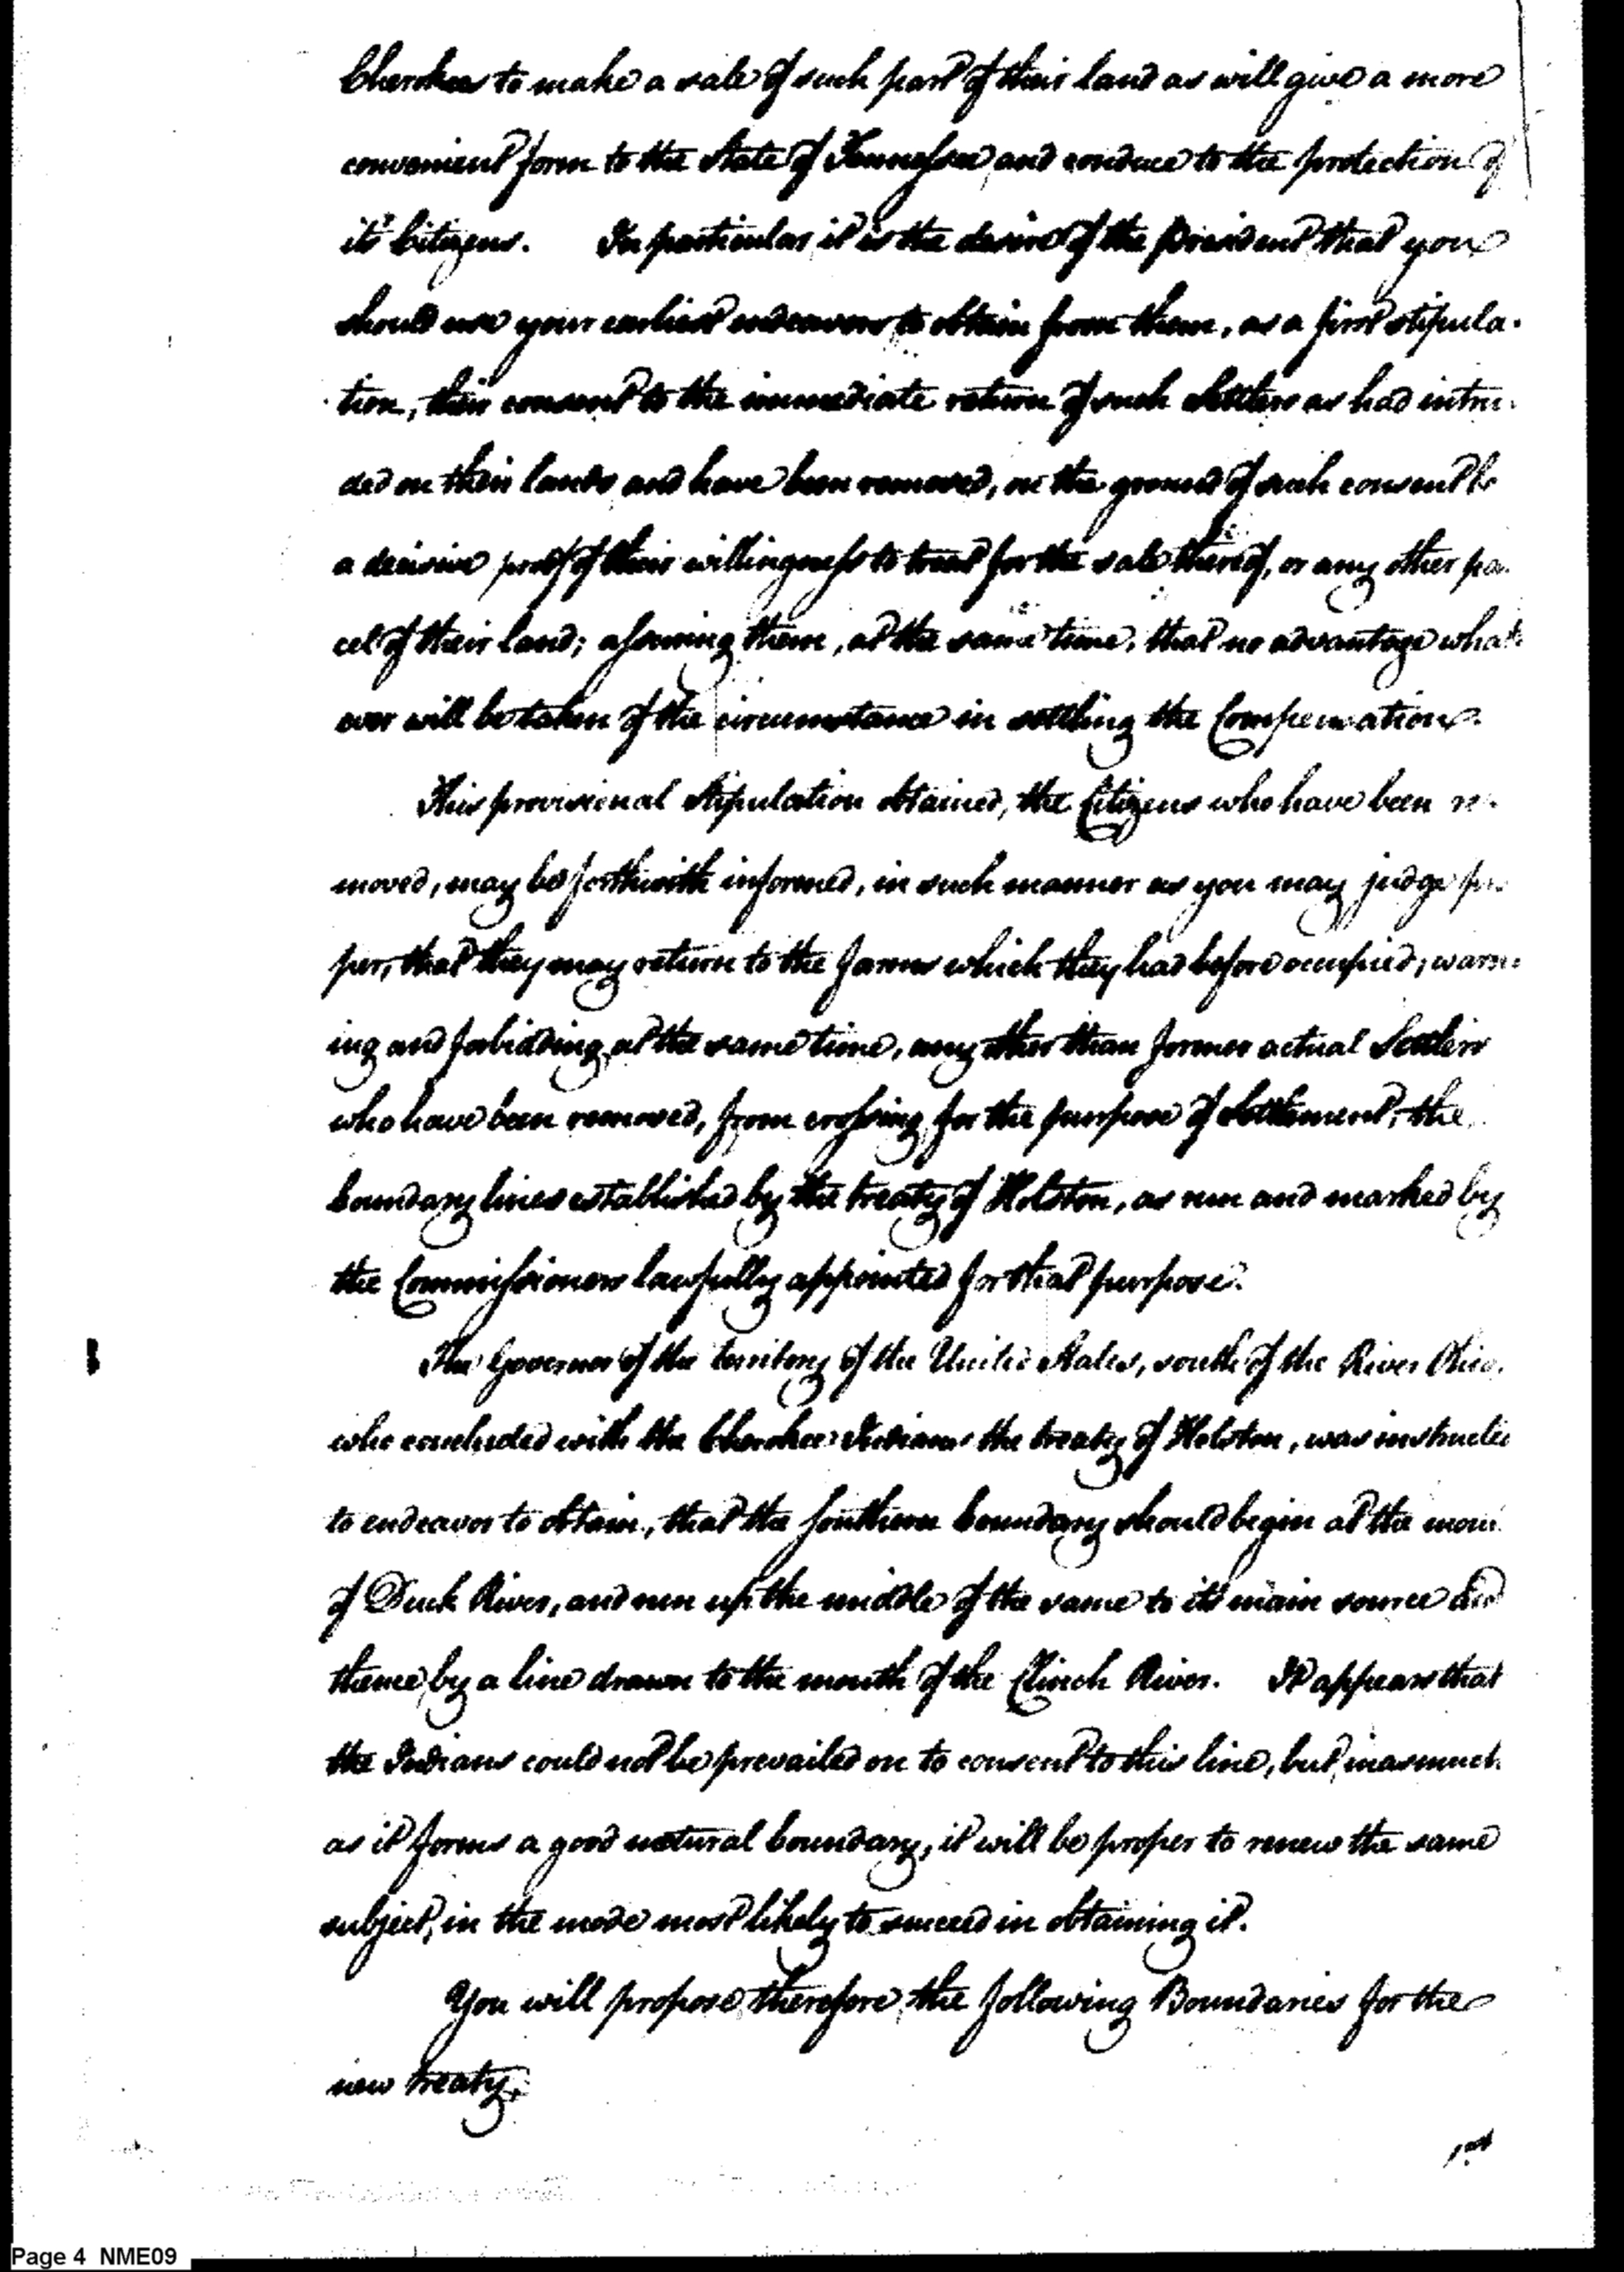 Cherokees to make a sale of such part of their land as will give a more
convenient form to the State of Tennessee, and conduce to the protection of
it's Citizens. In particular, it is the desire of the President, that you
should use your earliest endeavors to obtain from them, as a first stipula-
tion, their consent to the immediate return of such Settlers as had intru-
ded on their lands and have been removed, on the ground of such consent be
a decisive proof of their willingness to treat for the sale thereof, or any other pa
cel of their land; assuring them, at the same time, that no advantage what
ever will be taken of the circumstance in settling the Compensation.
This provisional Stipulation obtained, the Citizens who have been re-
moved, may be forthwith informed, in such manner as you may judge pro
per, that they may return to the farms which they had before occupied; warn-
ing and forbidding, at the same time, any other than former actual Settlers
who have been removed, from crossing, for the purpose of settlement, the
boundary lines established by the treaty of Holston, as run and marked by
the Commissioners lawfully appointed for that purpose.
The Governor of the territory of the United States, south of the River Ohio,
who concluded with the Cherokee Indians the treaty of Holston, was instructed
to endeavor to obtain, that the southern boundary should begin at the mou
of Duck River, and run up the middle of the same to its main source and
thence by a line drawn to the mouth of the Clinch River. It appears that
the Indians could not be prevailed on to consent to this line, but, inasmuch
as it forms a good natural boundary, it will be proper to renew the same
subject, in the mode most likely to succeed in obtaining it.
You will propose, therefore, the following Boundaries for the
new treaty.
1st
Page 4 NME09